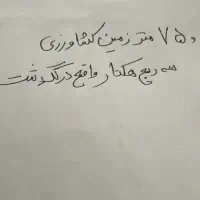 و ۷۵ متر زمین کشاورزی
سه ربع هکتار واقع در گلدشت